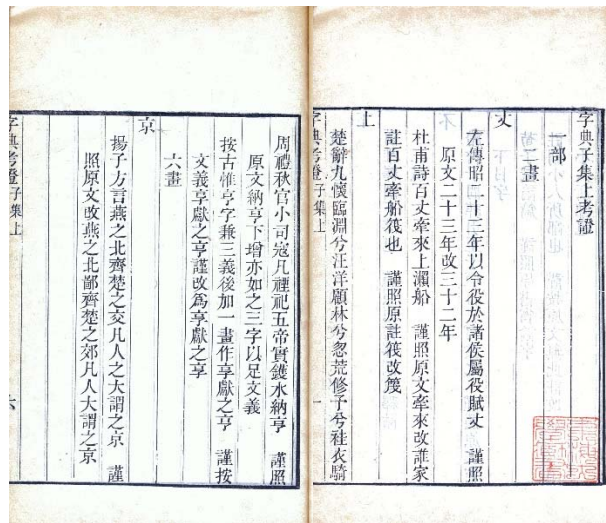 字典子集上考證
一部
二畫
丈
左傳昭二十三年以令役於諸侯屬役賦丈　謹照
原文二十三年改三十二年
杜甫詩百丈牽來上瀨船　謹照原文牽來改誰家
註百丈牽船筏也　謹照原註筏改篾
上
楚辭九懷臨淵兮汪洋顧林兮忽荒修予兮袿衣騎
字典考證子集上　一
周禮秋官小司寇凡禋祀五帝實鑊水納亨　謹照
原文納亨下增亦如之三字以足文義
按古惟亨字兼三義後加一畫作享獻之亨　謹按
文義享獻之亨謹改爲享獻之享
六畫
京
揚子方言燕之北齊楚之交凡人之大謂之京　謹
照原文改燕之北鄙齊楚之郊凡人大謂之京
字典考證子集上　六